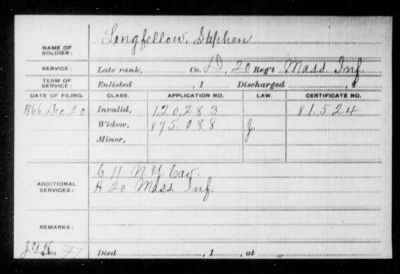 NAME OF SOLDIER: Longfellow, Stephen
SERVICE: Late rank, Co. D, 20 Reg't Mass Inf.
TERM OF SERVICE: Enlisted , 1 Discharged , 1
DATE OF FILING. CLASS. APPLICATION NO. LAW. CERTIFICATE NO.
1866 Dec 20 Invalid, 120.283 81.524
Widow, 875.088 J
Minor,
ADDITIONAL SERVICES: C 11 N.Y. Cav.
H 20 Mass Inf.
REMARKS:
Died , 1 , at